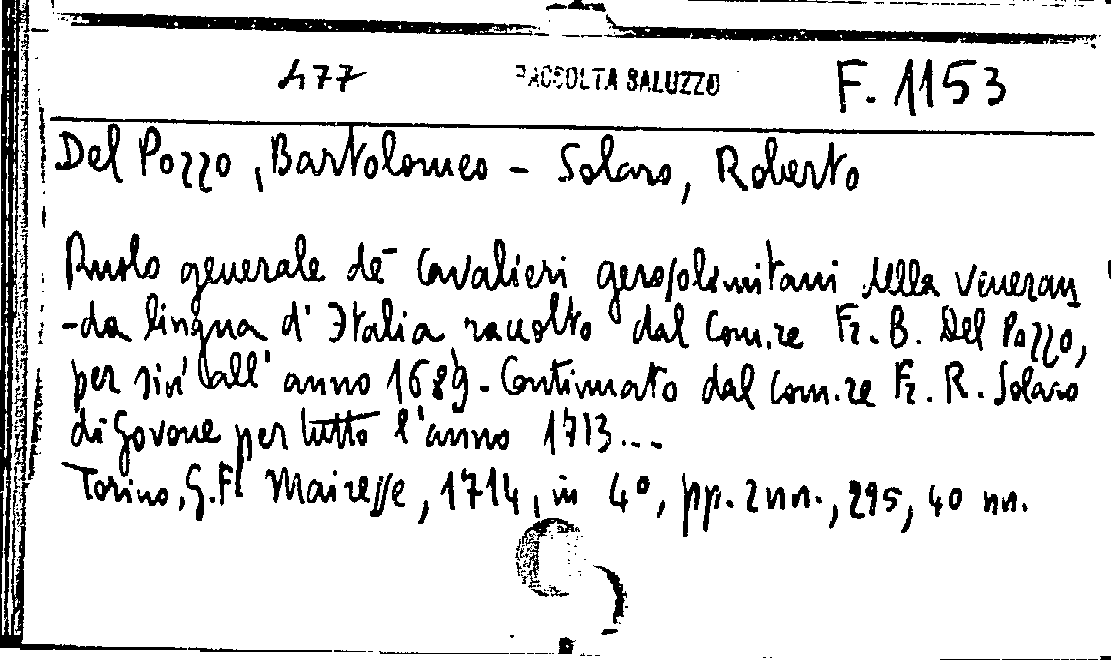 477 RACCOLTA SALUZZO F. 1153
Del Pozzo, Bartolomeo - Solaro, Roberto
Ruolo generale de' Cavalieri gerosolimitani della veneran
-da lingua d'Italia raccolto dal Com.re Fr. B. Del Pozzo,
per sin' all' anno 1689. Continuato dal com.re Fr. R. Solaro
di Govone per tutto l'anno 1713...
Torino, G.F. Mairesse, 1714, in 4°, pp. 2 nn., 295, 40 nn.